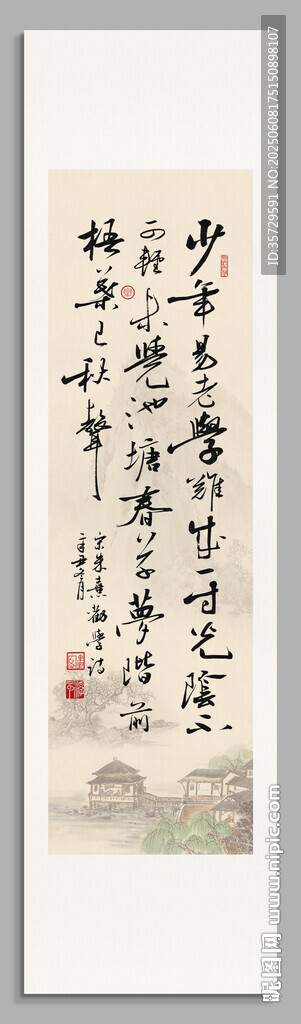 少年易老學難成一寸光陰不
可輕未覺池塘春草夢階前
梧葉已秋聲
宋朱熹勸學詩
辛丑冬月
ID:35729591 NO:20250608175150898107
昵图网 www.nipic.com